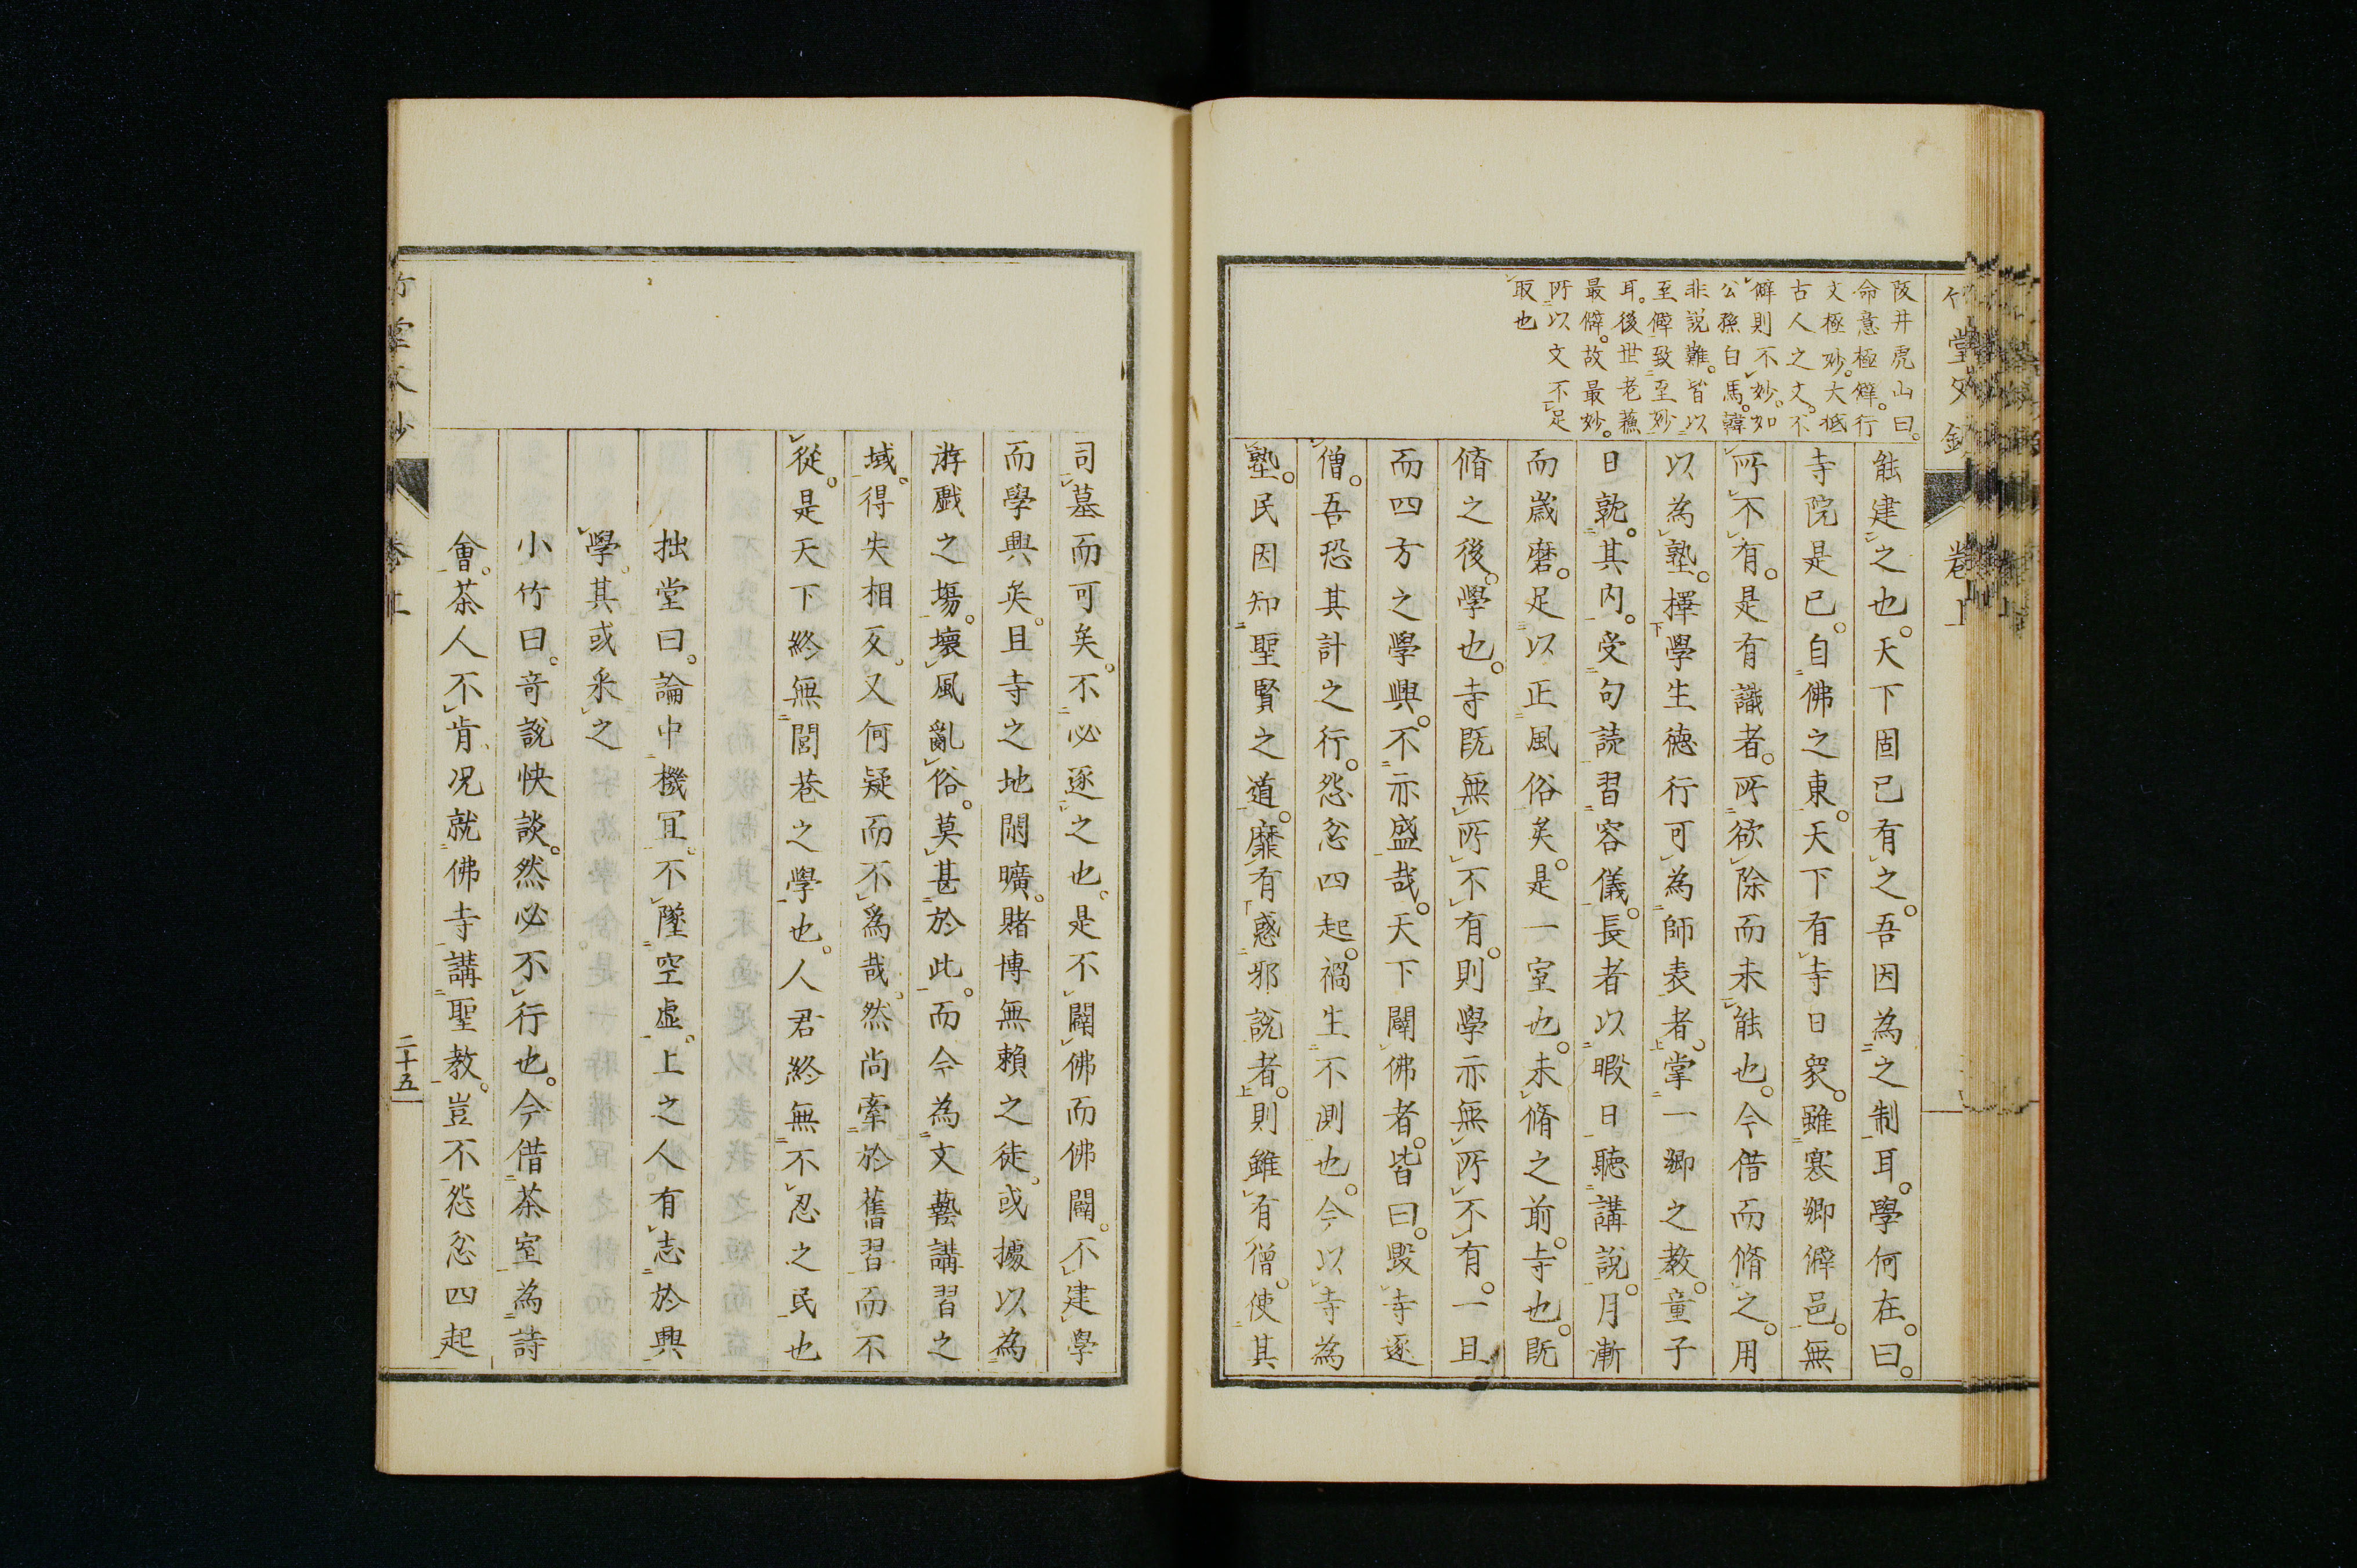 竹堂文鈔 卷上
阪井虎山曰。
命意極僻。行
文極妙。大抵
古人之文。不
僻則不妙。如
公孫白馬。韓
非說難。皆以
至僻致至妙
耳。後世老蘇
最僻。故最妙。
所以文不足
取也
能建之也。天下固已有之。吾因為之制耳。學何在。曰。
寺院是已。自佛之東。天下有寺日衆。雖寒鄉僻邑。無
所不有。是有識者。所欲除而未能也。今借而脩之。用
以為塾。擇學生德行可為師表者。掌一鄉之教。童子
日就其內。受句読習容儀。長者以暇日聽講說。月漸
而嵗磨。足以正風俗矣。是一室也。未脩之前。寺也。既
脩之後。學也。寺既無所不有。則學亦無所不有。一旦
而四方之學興。不亦盛哉。天下闢佛者。皆曰。毀寺逐
僧。吾恐其計之行。怨忿四起。禍生不測也。今以寺為
塾。民因知聖賢之道。靡有惑邪說者。則雖有僧。使其
司墓而可矣。不必逐之也。是不闢佛而佛闢。不建學
而學興矣。且寺之地閑曠。賭博無賴之徒。或據以為
游戲之場。壞風亂俗。莫甚於此。而今為文藝講習之
域。得失相反。又何疑而不爲哉。然尚牽於舊習而不
從。是天下終無閭巷之學也。人君終無不忍之民也
拙堂曰。論中機冝。不墜空虛。上之人有志於興
學。其或釆之
小竹曰。奇說快談。然必不行也。今借茶室為詩
會。茶人不肯。況就佛寺講聖教。豈不怨忿四起
竹堂文鈔 卷上 二十五